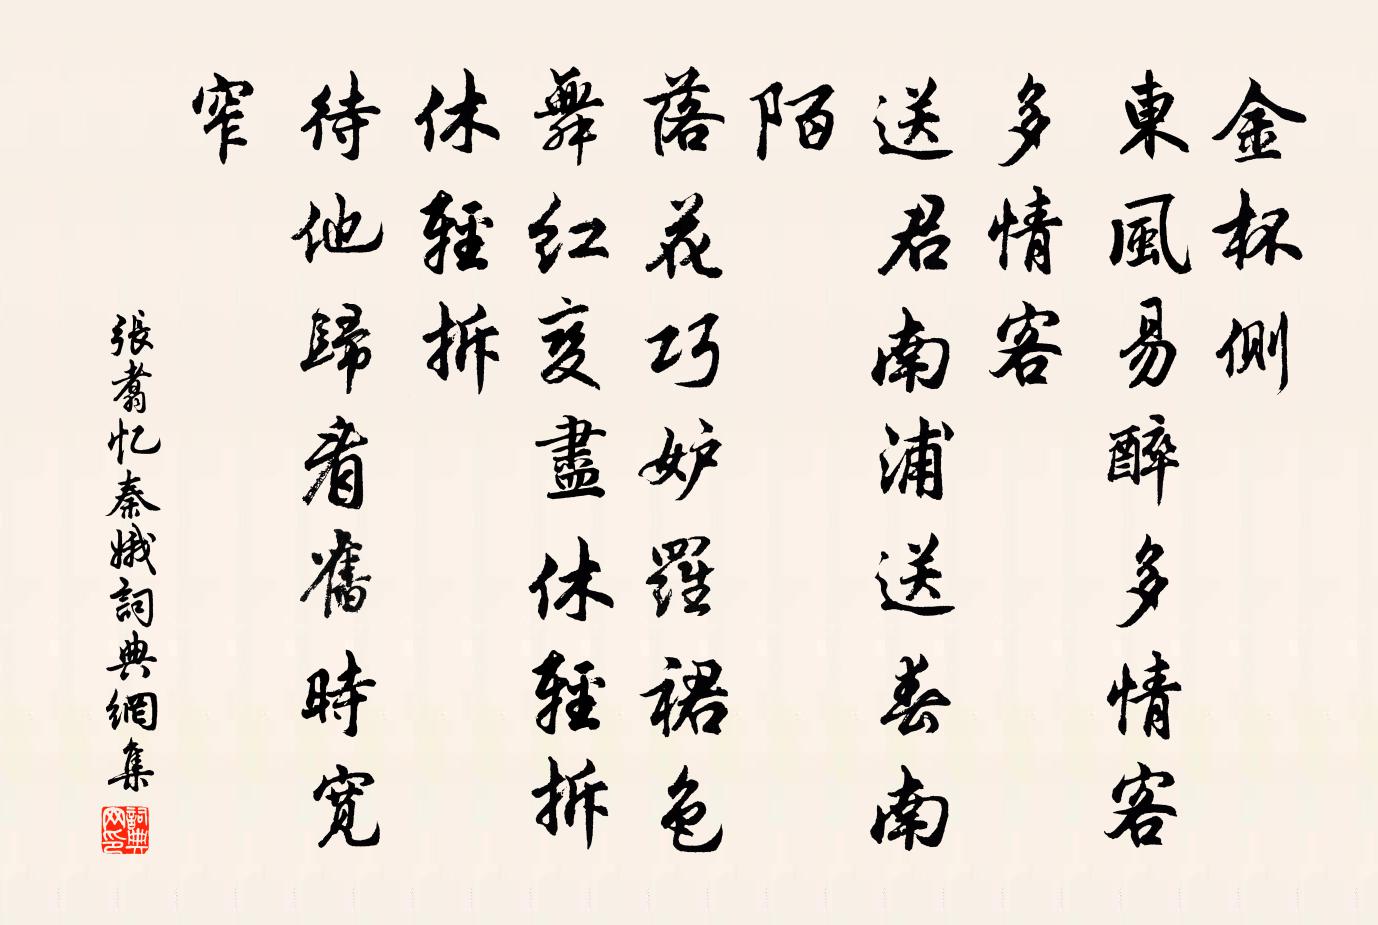 金杯側
東風易醉多情客
多情客
送君南浦送春南
陌
落花巧妒羅裙色
舞红衮盡休輕拆
休輕拆
待他歸看舊時寬
窄
張翥忆秦娥詞典網集
詞典网印